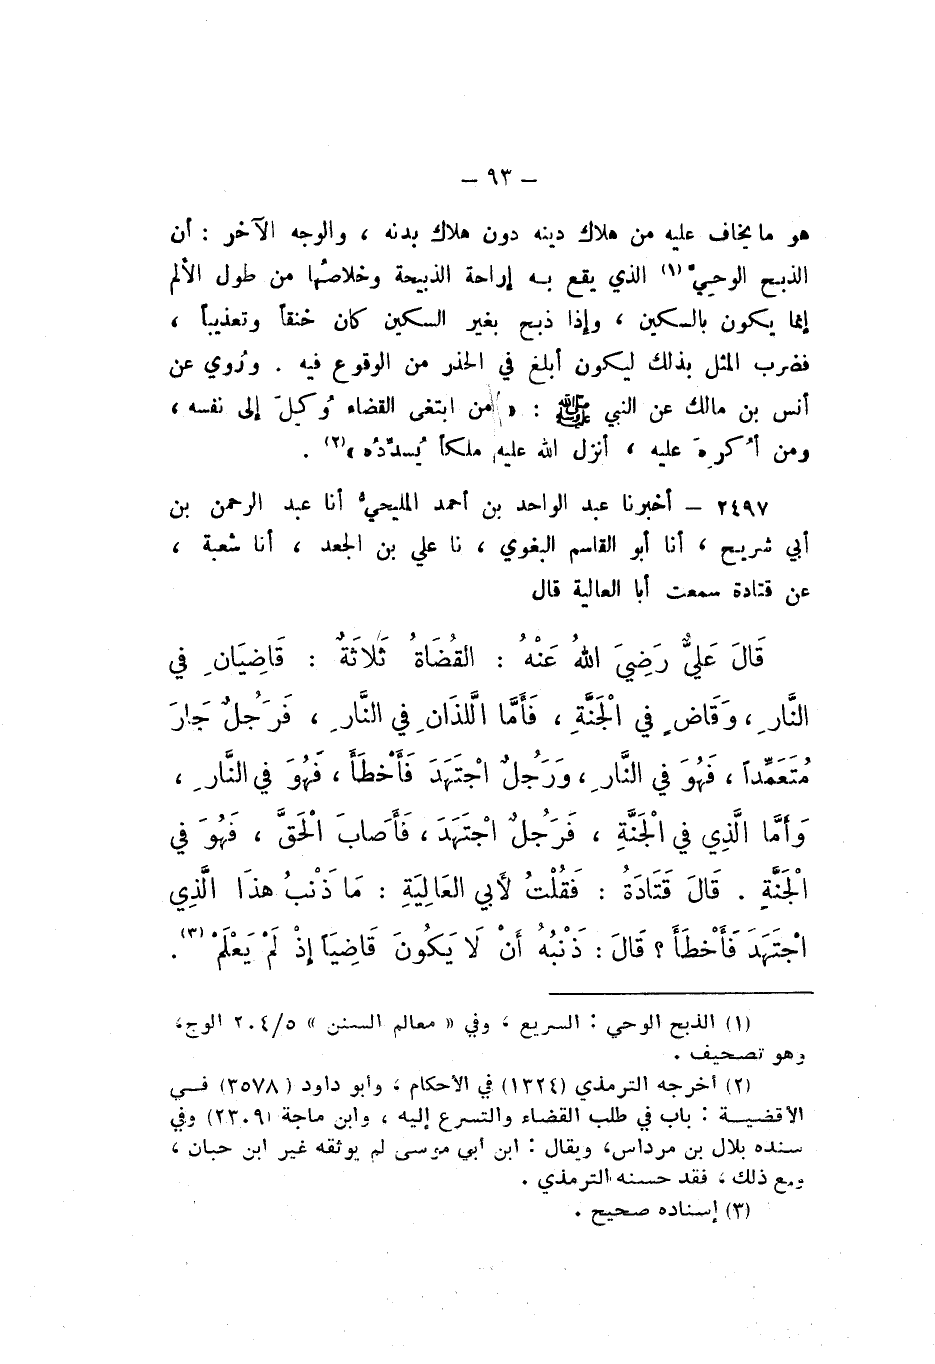 – ٩٣ –
هو ما يخاف عليه من هلاك دينه دون هلاك بدنه ، والوجه الآخر : أن
الذبح الوحيّ (١) الذي يقع به إراحة الذبيحة وخلاصُها من طول الألم
إنما يكون بالسكين ، وإذا ذبح بغير السكين كان خنقاً وتعذيباً ،
فضرب المثل بذلك ليكون أبلغ في الحذر من الوقوع فيه . ورُوي عن
أنس بن مالك عن النبي ﷺ : « من ابتغى القضاء وُكِلَ إلى نفسه ،
ومن أُكرِهَ عليه ، أنزل الله عليه ملكاً يُسدّدُه »(٢) .
٢٤٩٧ – أخبرنا عبد الواحد بن أحمد المليحيُّ أنا عبد الرحمن بن
أبي شريح ، أنا أبو القاسم البغوي ، نا علي بن الجعد ، أنا شعبة ،
عن قتادة سمعت أبا العالية قال
قَالَ عَلِيٌّ رَضِيَ اللهُ عَنْهُ : القُضَاةُ ثَلاثَةٌ : قَاضِيَانِ في
النَّارِ ، وَقَاضٍ في الْجَنَّةِ ، فَأَمَّا اللَّذَانِ في النَّارِ ، فَرَجُلٌ جَارَ
مُتَعَمِّداً ، فَهُوَ في النَّارِ ، وَرَجُلٌ اجْتَهَدَ فَأَخْطَأَ ، فَهُوَ في النَّارِ ،
وَأَمَّا الَّذِي في الْجَنَّةِ ، فَرَجُلٌ اجْتَهَدَ ، فَأَصَابَ الْحَقَّ ، فَهُوَ في
الْجَنَّةِ . قَالَ قَتَادَةُ : فَقُلْتُ لأَبي العَالِيَةِ : مَا ذَنْبُ هذَا الَّذِي
اجْتَهَدَ فَأَخْطَأَ ؟ قَالَ : ذَنْبُهُ أَنْ لَا يَكُونَ قَاضِيَاً إِذْ لَمْ يَعْلَمْ (٣) .
(١) الذبح الوحي : السريع ، وفي « معالم السنن » ٢٠٤/٥ الوج،
وهو تصحيف .
(٢) أخرجه الترمذي (١٣٢٤) في الأحكام ، وأبو داود (٣٥٧٨) في
الأقضية : باب في طلب القضاء والتسرع إليه ، وابن ماجة (٢٣٠٩) وفي
سنده بلال بن مرداس، ويقال : ابن أبي موسى لم يوثقه غير ابن حبان ،
ومع ذلك ، فقد حسنه الترمذي .
(٣) إسناده صحيح .